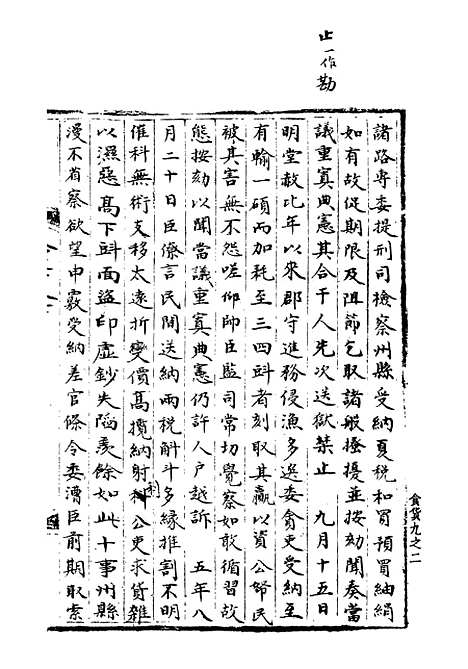 止一作勘
諸路専委提刑司檢察州縣受納夏税和買預買紬絹
如有故促期限及阻節乞取諸般搔擾並按劾聞奏當
議重寘典憲其合干人先次送獄禁止　九月十五日
明堂赦比年以來郡守進務侵漁多选委貪吏受納至
有輸一碩而加耗至三四㪷者刻取其贏以資公帑民
被其害無不怨嗟仰帥臣監司常切覺察如敢循習故
態按劾以聞當議重寘典憲仍許人户越訴　五年八
月二十日臣僚言民間送納兩税斛斗多緣推割不明
催科無術支移太遠折變價髙攬納射利公吏求貨雜
以濕惡髙下㪷面盜印虛鈔失陷羨餘如此十事州縣
漫不省察欲望申嚴受納差官條令委漕臣前期取索
食貨九之二